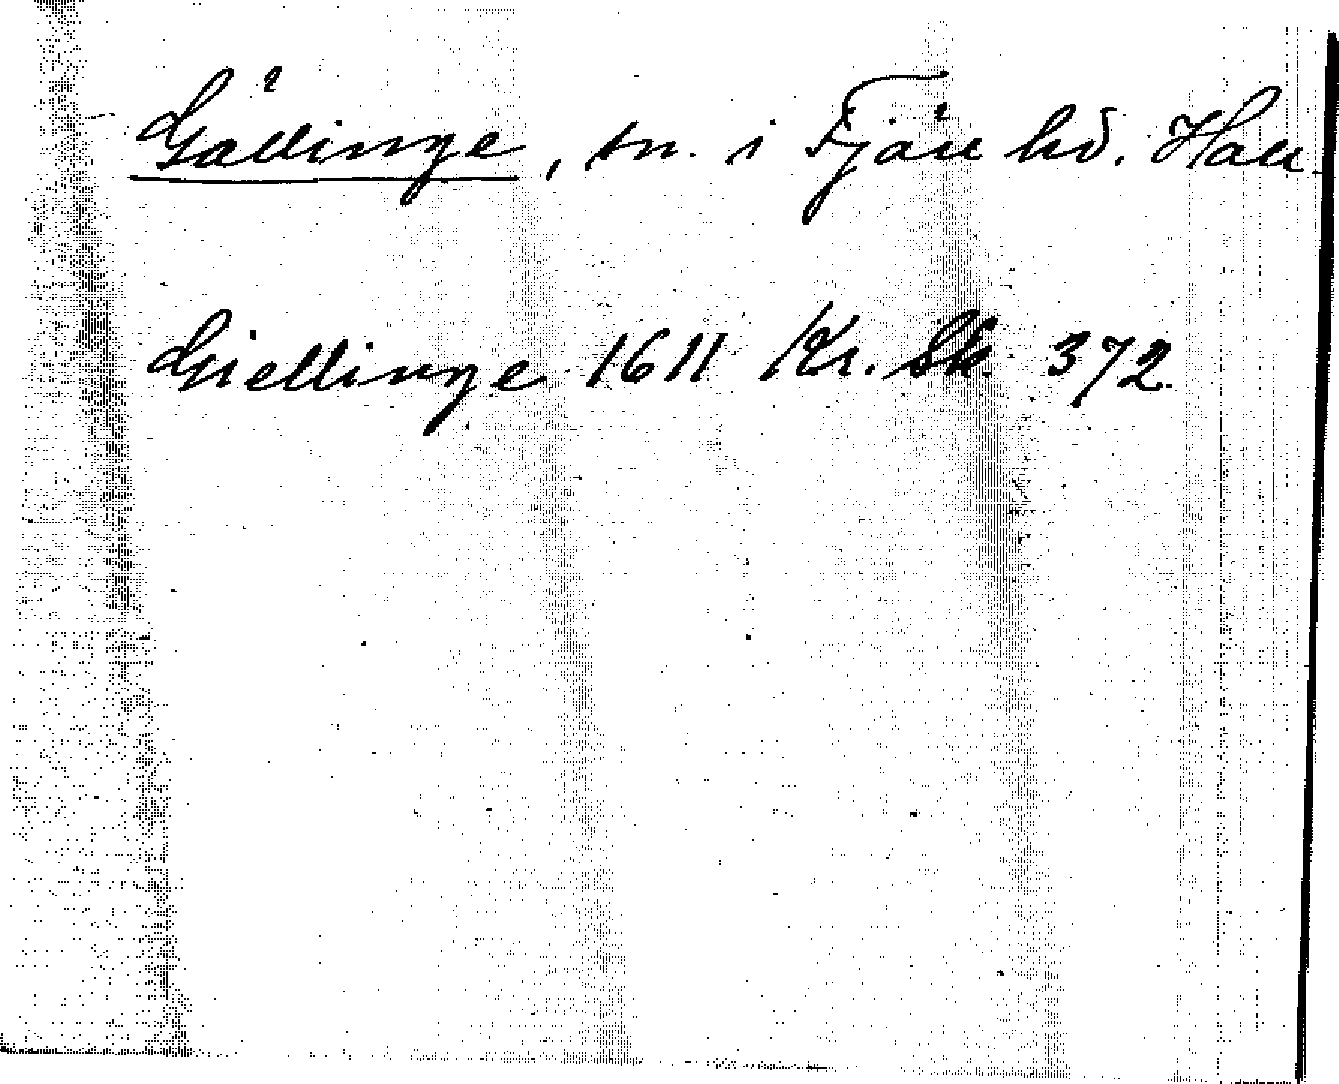 Gällinge, sn. i Fjäre hd. Hall.
Giellinge 1611 Kr. Sk. 372.